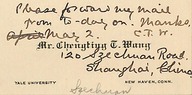 Please forward my mail
from to-day on. Thanks.
Mar 2. C.T.W.
Mr. Chengting T. Wang
120 Szechuan Road.
Shanghai, China
YALE UNIVERSITY
NEW HAVEN, CONN.
Szechuan